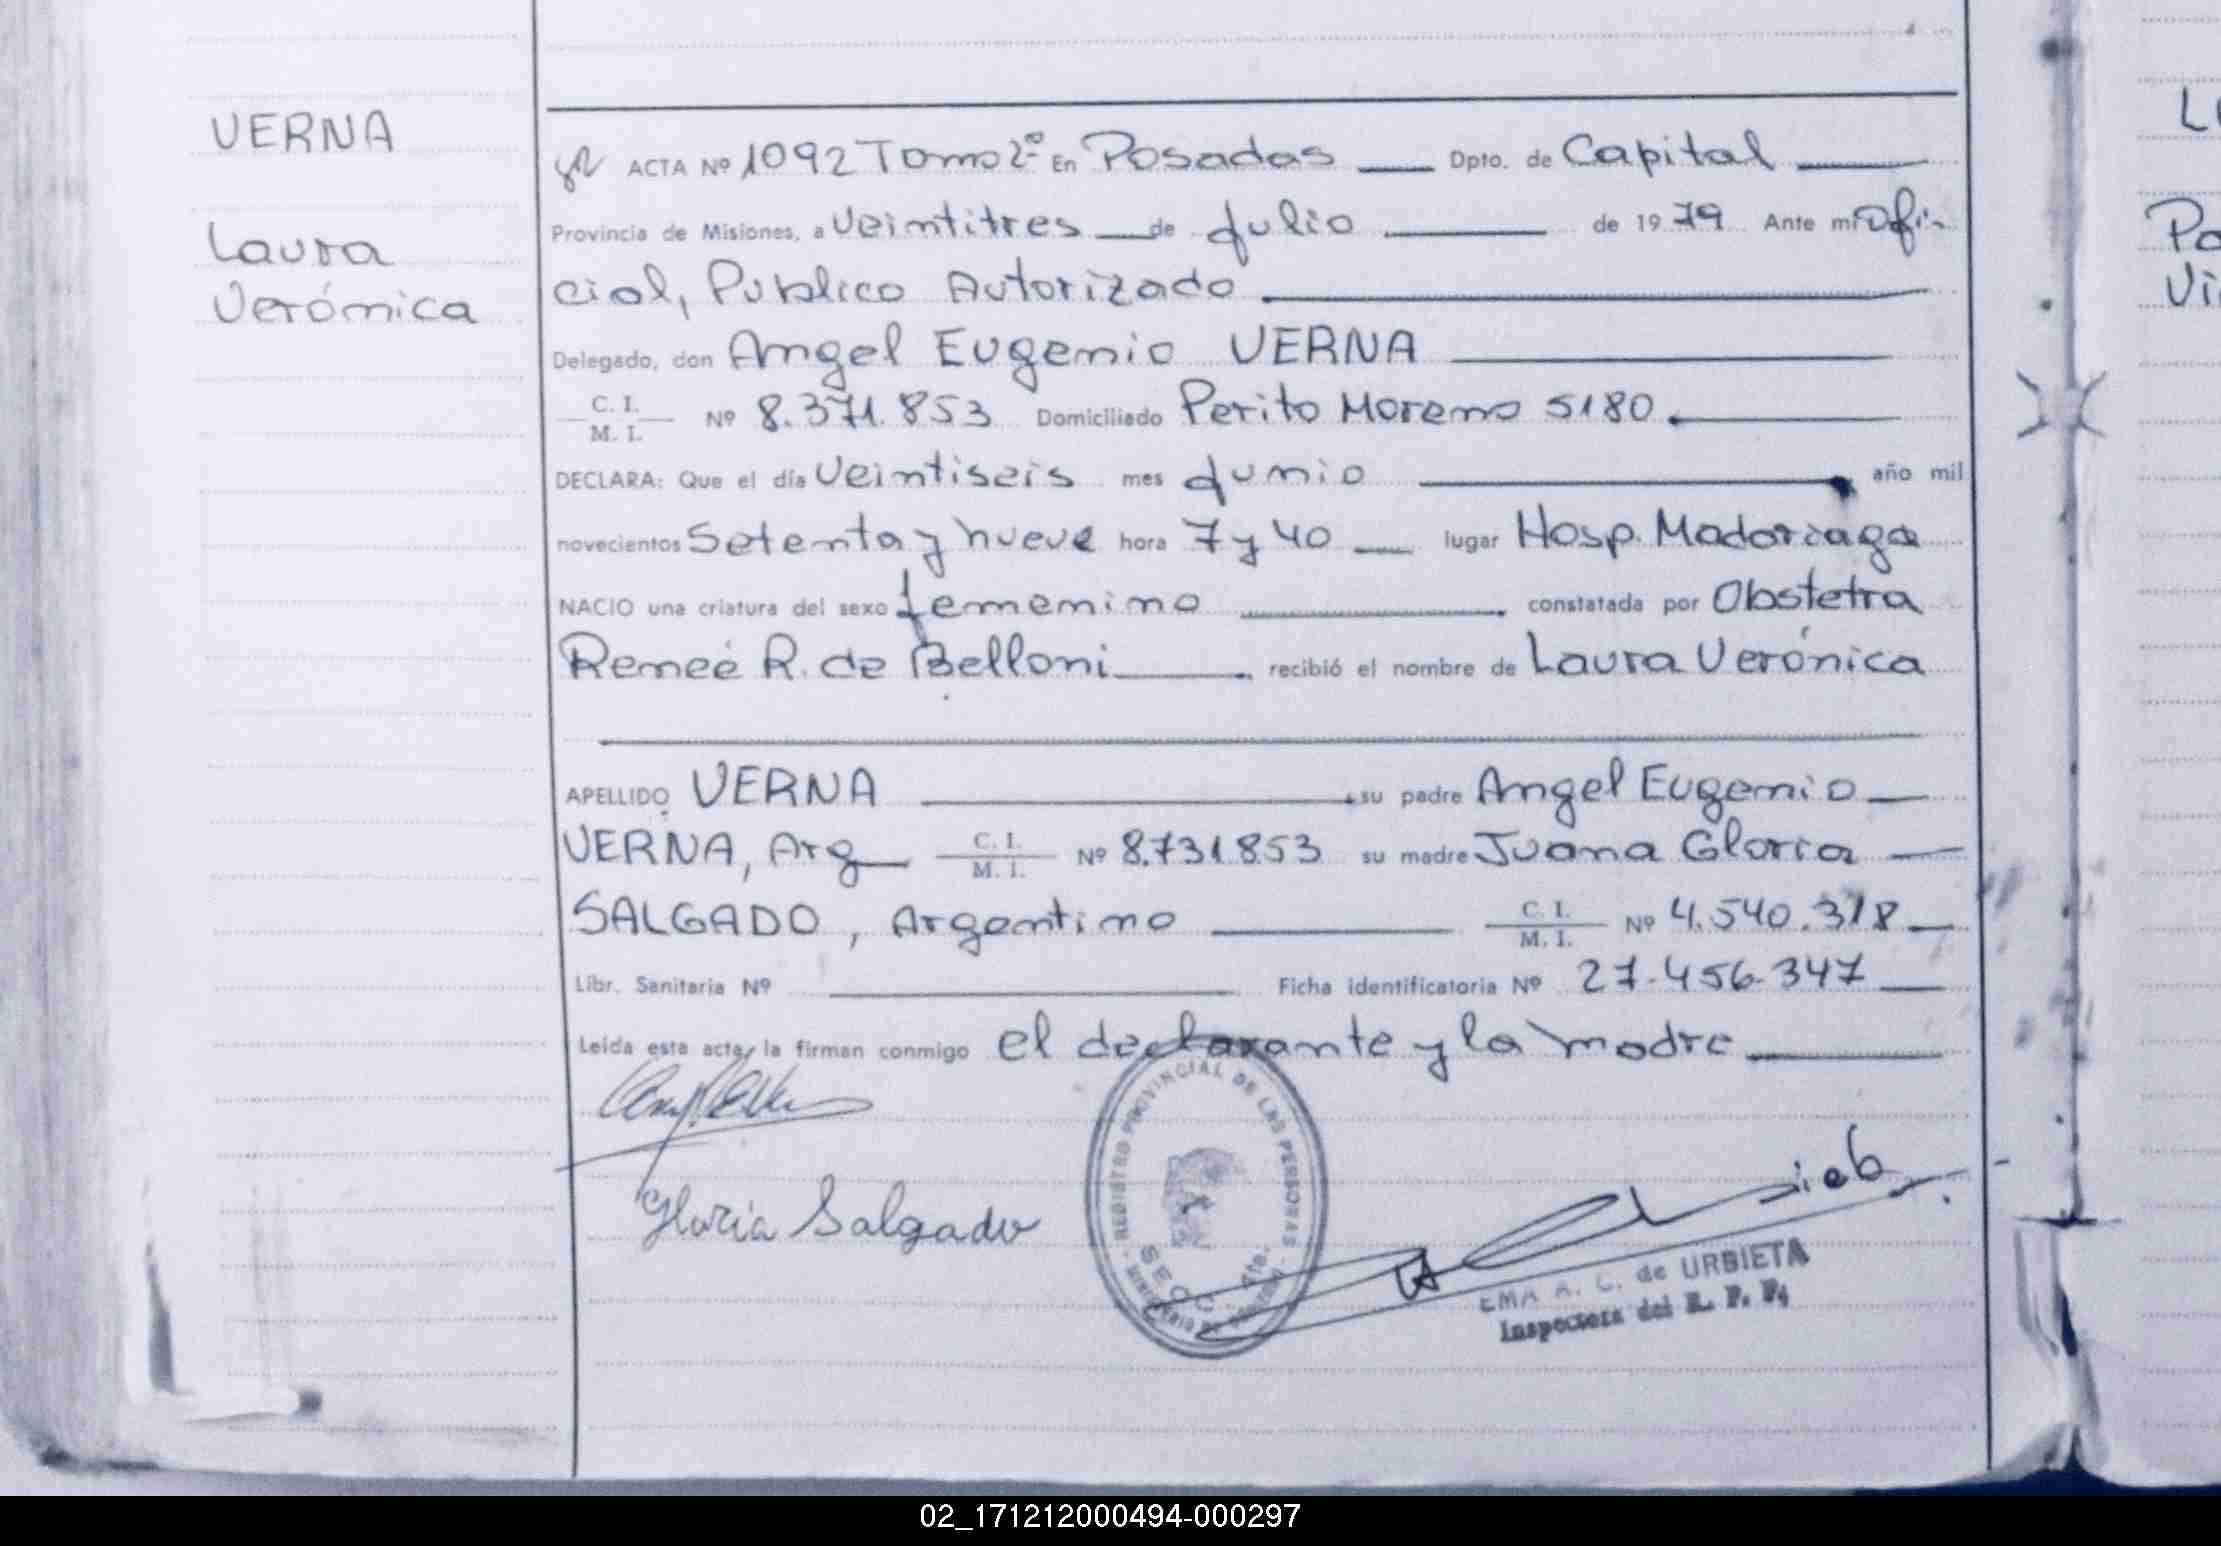 VERNA
Laura
Verónica
ACTA Nº 1092 Tomo 2º En Posadas Dpto. de Capital
Provincia de Misiones, a Veintitres de Julio de 1979 Ante mi Ofi-
cial, Publico Autorizado
Delegado, don Angel Eugenio VERNA
C. I.
M. I.
Nº 8.371.853 Domiciliado Perito Moreno 5180
DECLARA: Que el día Veintiseis mes Junio año mil
novecientos Setenta y nueve hora 7 y 40 lugar Hosp. Madariaga
NACIO una criatura del sexo femenino constatada por Obstetra
Reneé R. de Belloni recibió el nombre de Laura Verónica
APELLIDO VERNA su padre Angel Eugenio
VERNA, Arg C. I.
M. I.
Nº 8.731.853 su madre Juana Gloria
SALGADO, Argentina C. I.
M. I.
Nº 4.540.318
Libr. Sanitaria Nº Ficha identificatoria Nº 27.456.347
Leída esta acta, la firman conmigo el declarante y la madre
Gloria Salgado
REGISTRO PROVINCIAL DE LAS PERSONAS
SECC. 4ta.
EMA A. C. de URBIETA
Inspectora del R. P. P.
Po
Vi
02_171212000494-000297